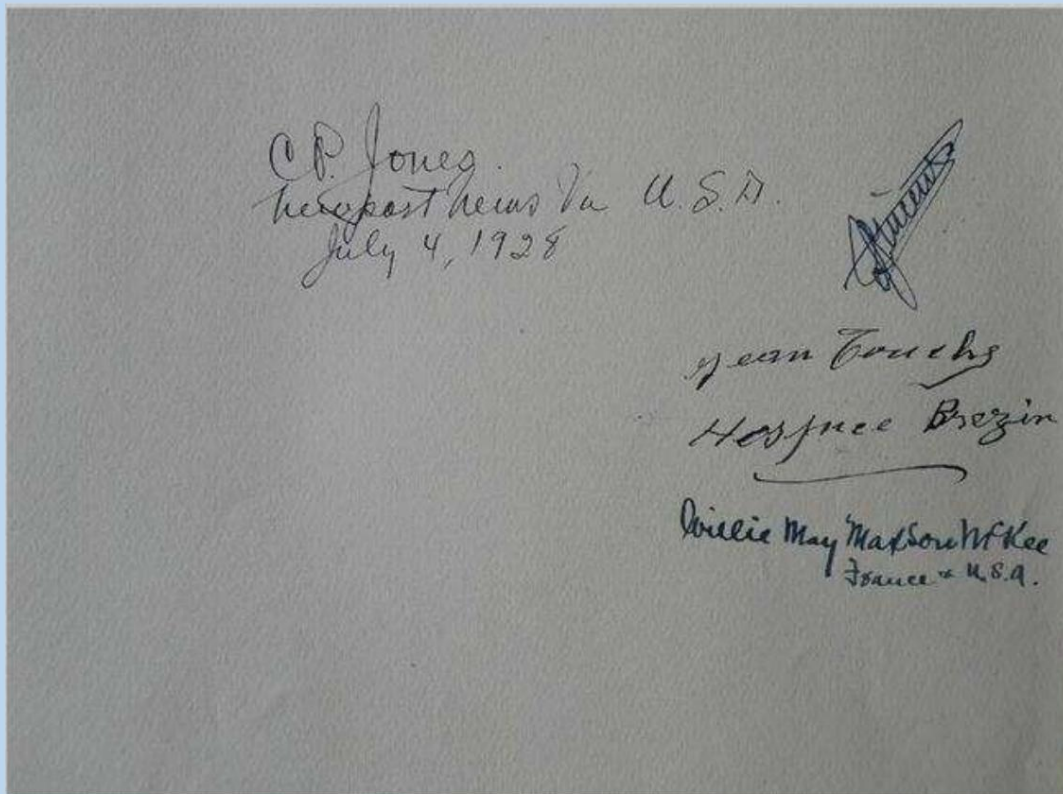 C P. Jones.
Newport News Va U. S. A.
July 4, 1928
Jean
Hospice Brezin
Willie May Maxson McKee
France & U.S.A.